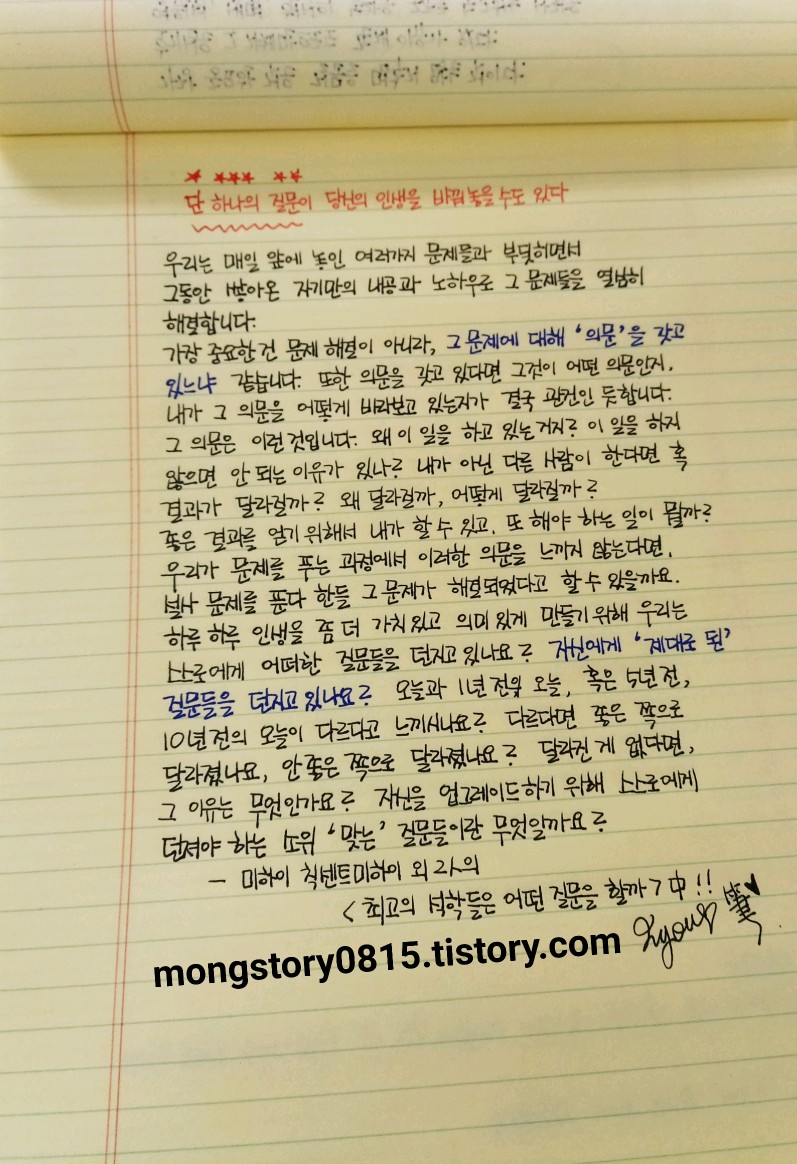 단 하나의 질문이 당신의 인생을 바꿔놓을 수도 있다
우리는 매일 앞에 놓인 여러가지 문제들과 부딪히면서
그동안 쌓아온 자기만의 내공과 노하우로 그 문제들을 열심히
해결합니다.
가장 중요한 건 문제 해결이 아니라, 그 문제에 대해 '의문'을 갖고
있느냐 같습니다. 또한 의문을 갖고 있다면 그것이 어떤 의문인지,
내가 그 의문을 어떻게 바라보고 있는지가 결국 관건인 듯합니다.
그 의문은 이런 것입니다. 왜 이 일을 하고 있는 거지? 이 일을 하지
않으면 안 되는 이유가 있나? 내가 아닌 다른 사람이 한다면 혹
결과가 달라질까? 왜 달라질까, 어떻게 달라질까?
좋은 결과를 얻기 위해서 내가 할 수 있고, 또 해야 하는 일이 뭘까?
우리가 문제를 푸는 과정에서 이러한 의문을 느끼지 않는다면,
설사 문제를 푼다 한들 그 문제가 해결되었다고 할 수 있을까요.
하루 하루 인생을 좀 더 가치있고 의미 있게 만들기 위해 우리는
스스로에게 어떠한 질문들을 던지고 있나요? 자신에게 '제대로 된'
질문들을 던지고 있나요? 오늘과 1년 전의 오늘, 혹은 5년 전,
10년 전의 오늘이 다르다고 느끼시나요? 다르다면 좋은 쪽으로
달라졌나요, 안 좋은 쪽으로 달라졌나요? 달라진 게 없다면,
그 이유는 무엇인가요? 자신을 업그레이드하기 위해 스스로에게
던져야 하는 소위 '맞는' 질문들이란 무엇일까요?
- 미하이 칙센트미하이 외 2人의
<최고의 석학들은 어떤 질문을 할까> 中!!
mongstory0815.tistory.com